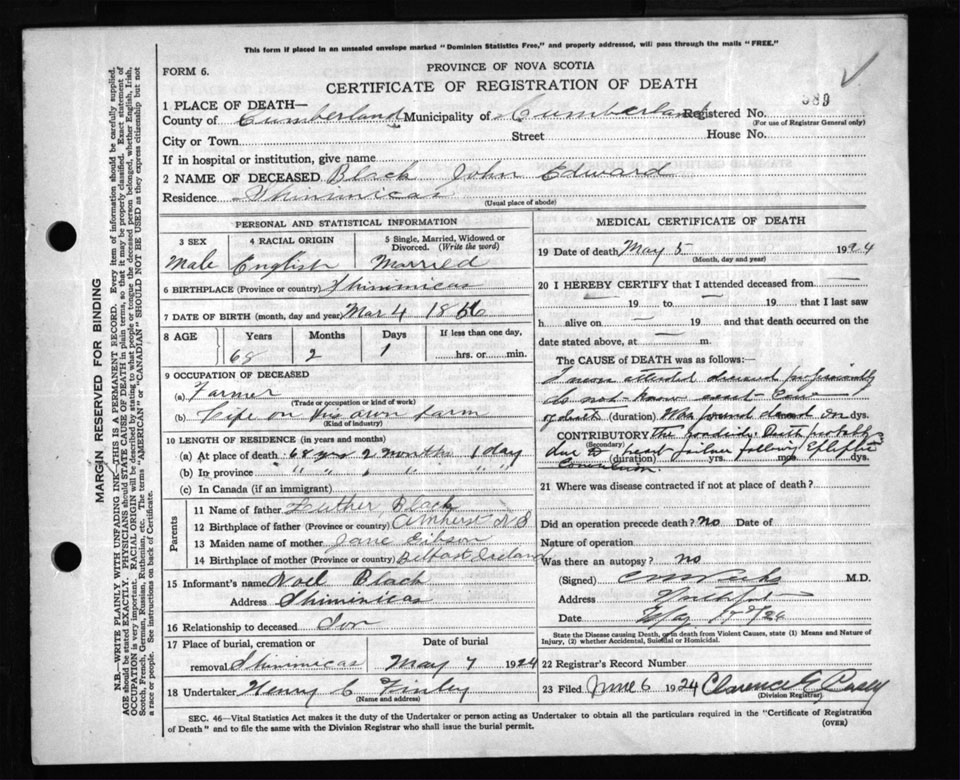 This form if placed in an unsealed envelope marked "Dominion Statistics Free," and properly addressed, will pass through the mails "FREE."
FORM 6.
PROVINCE OF NOVA SCOTIA
CERTIFICATE OF REGISTRATION OF DEATH
1 PLACE OF DEATH—
County of Cumberland Municipality of Cumberland Registered No. 389
(For use of Registrar General only)
City or Town Street House No.
If in hospital or institution, give name
2 NAME OF DECEASED Black John Edward
Residence Shinimicas
(Usual place of abode)
PERSONAL AND STATISTICAL INFORMATION
3 SEX 4 RACIAL ORIGIN 5 Single, Married, Widowed or Divorced. (Write the word)
Male English Married
6 BIRTHPLACE (Province or country) Shinimicas
7 DATE OF BIRTH (month, day and year) Mar 4 1856
8 AGE Years Months Days If less than one day,
68 2 1 hrs. or min.
9 OCCUPATION OF DECEASED
(a) Farmer
(Trade or occupation or kind of work)
(b) Life on his own farm
(Kind of industry)
10 LENGTH OF RESIDENCE (in years and months)
(a) At place of death 68 yrs 2 months 1 day
(b) In province " " " " " "
(c) In Canada (if an immigrant)
Parents
11 Name of father Luther Black
12 Birthplace of father (Province or country) Amherst N S
13 Maiden name of mother Jane Gibson
14 Birthplace of mother (Province or country) Belfast Ireland
15 Informant's name Noel Black
Address Shinimicas
16 Relationship to deceased Son
17 Place of burial, cremation or Date of burial
removal Shinimicas May 7 1924
18 Undertaker Henry C Finley
(Name and address)
MEDICAL CERTIFICATE OF DEATH
19 Date of death May 5 1924
(Month, day and year)
20 I HEREBY CERTIFY that I attended deceased from
19 to 19 that I last saw
h alive on 19 and that death occurred on the
date stated above, at m.
The CAUSE of DEATH was as follows:—
I never attended deceased professionally
do not know exact cause
of death (duration) Was found dead on dys.
CONTRIBUTORY the roadside Death probably
(Secondary)
due to heart failure following Epileptic
(duration) yrs. mos. dys.
Convulsion.
21 Where was disease contracted if not at place of death?
Did an operation precede death? no Date of
Nature of operation
Was there an autopsy? no
(Signed) M.D.
Address
Date May 1924
State the Disease causing Death, or in death from Violent Causes, state (1) Means and Nature of
Injury, (2) whether Accidental, Suicidal or Homicidal.
22 Registrar's Record Number
23 Filed June 6 1924 Clarence E Casey
(Division Registrar)
SEC. 46—Vital Statistics Act makes it the duty of the Undertaker or person acting as Undertaker to obtain all the particulars required in the "Certificate of Registration
of Death" and to file the same with the Division Registrar who shall issue the burial permit.
(OVER)
MARGIN RESERVED FOR BINDING
N.B.—WRITE PLAINLY WITH UNFADING INK—THIS IS A PERMANENT RECORD. Every item of information should be carefully supplied.
AGE should be stated EXACTLY. PHYSICIANS should STATE CAUSE OF DEATH in plain terms, so that it may be properly classified. Exact statement of
OCCUPATION is very important. RACIAL ORIGIN will be described by stating to what people or tongue the deceased person belonged, whether English, Irish,
Scotch, French, German, Russian, Ruthenian, etc. The terms "AMERICAN" or "CANADIAN" SHOULD NOT BE USED as they express citizenship but not
a race or people. See instructions on back of Certificate.